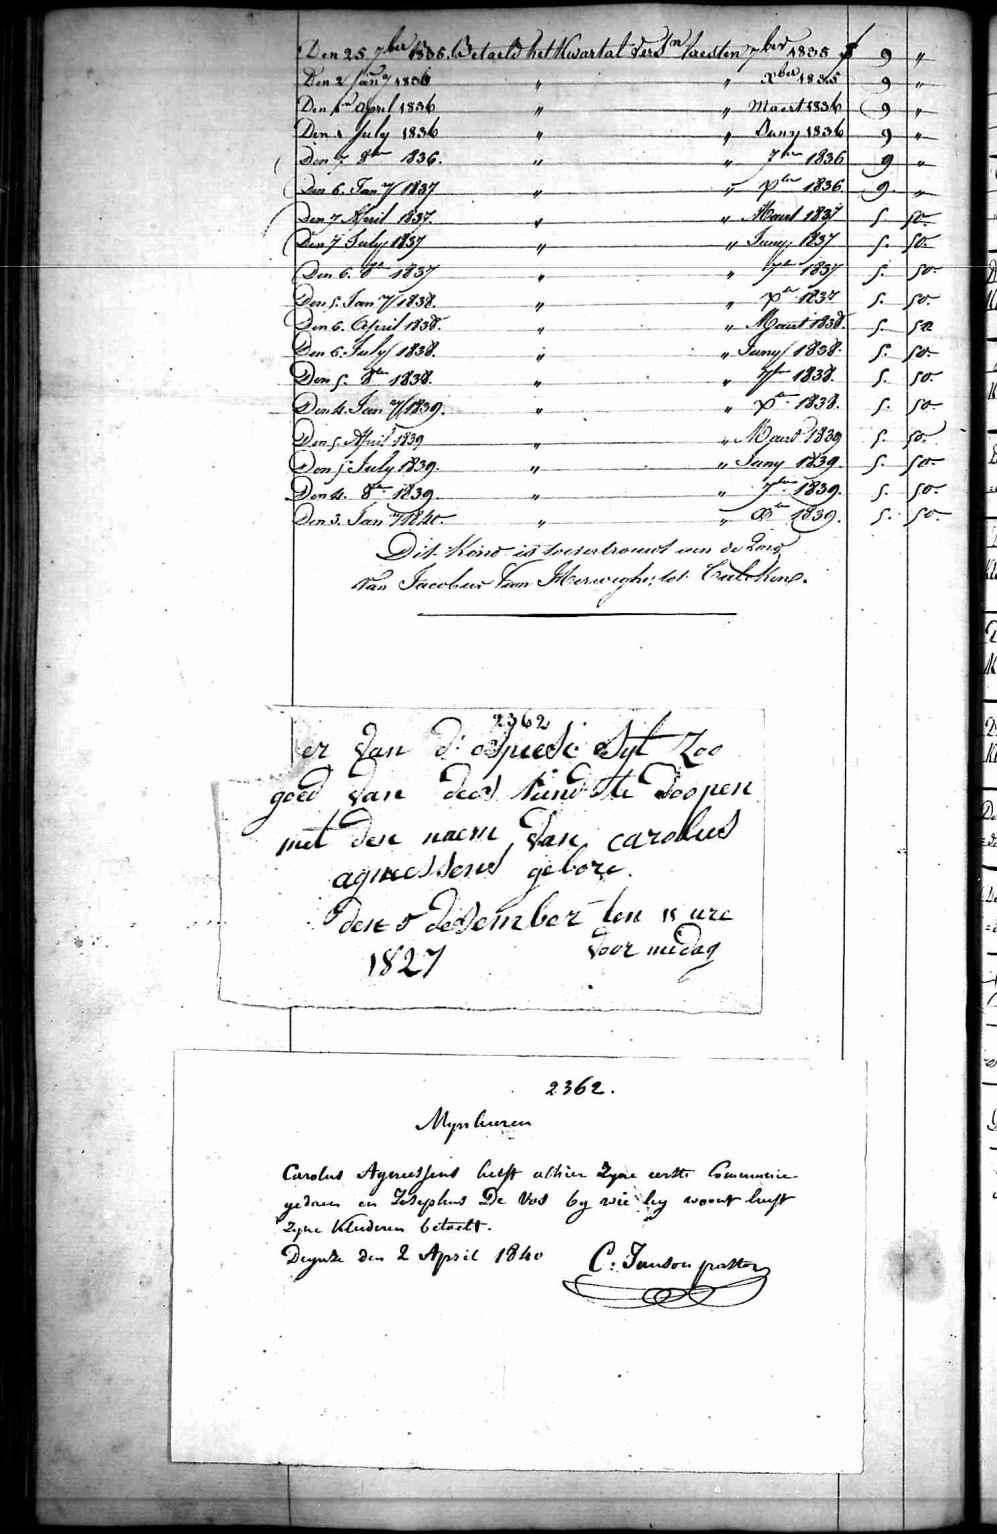 Den 25 7ber 1835. Betaeld het Kwartal vers 7ber 1835 f 9 "
Den 2 Jany 1836 " " Xber 1835 9 "
Den 1 April 1836 " " Maert 1836 9 "
Den 1 July 1836 " " Juny 1836 9 "
Den 7 8ber 1836. " " 7ber 1836 9 "
Den 6. Jany 1837 " " Xber 1836. 9. "
Den 7 April 1837. " " Maart 1837 5. 50.
Den 7 July 1837 " " Juny 1837 5. 50.
Den 6. 8er 1837 " " 7er 1837 5. 50.
Den 5. Jany 1838. " " Xer 1837 5. 50.
Den 6. April 1838. " " Maart 1838. 5. 50
Den 6. July 1838. " " Juny 1838. 5. 50.
Den 5. 8ber 1838. " " 7ber 1838. 5. 50.
Den 4. Jany 1839. " " Xer 1838. 5. 50.
Den 5. April 1839 " " Maart 1839 5. 50.
Den 5 July 1839. " " Juny 1839. 5. 50.
Den 4. 8ber 1839. " " 7ber 1839. 5. 50.
Den 3. Jany 1840. " " Xber 1839. 5. 50.
Dit Kind is toevertrouwt aen de Zorg
van Jacobus Van
2362
er van d' Syt Zoo
goed van dees kind te doopen
met den naem van carolus
agneessens gebore.
den 5 desember ten 11 ure
1827 voor midag
2362.
Mynheeren
Carolus Agneessens heeft alhier Zyne eerste Communie
gedaen en Josephus De Vos by wie hy woont heeft
Zyne Kleederen betaelt.
Deynze den 2 April 1840 C: Janson pastor